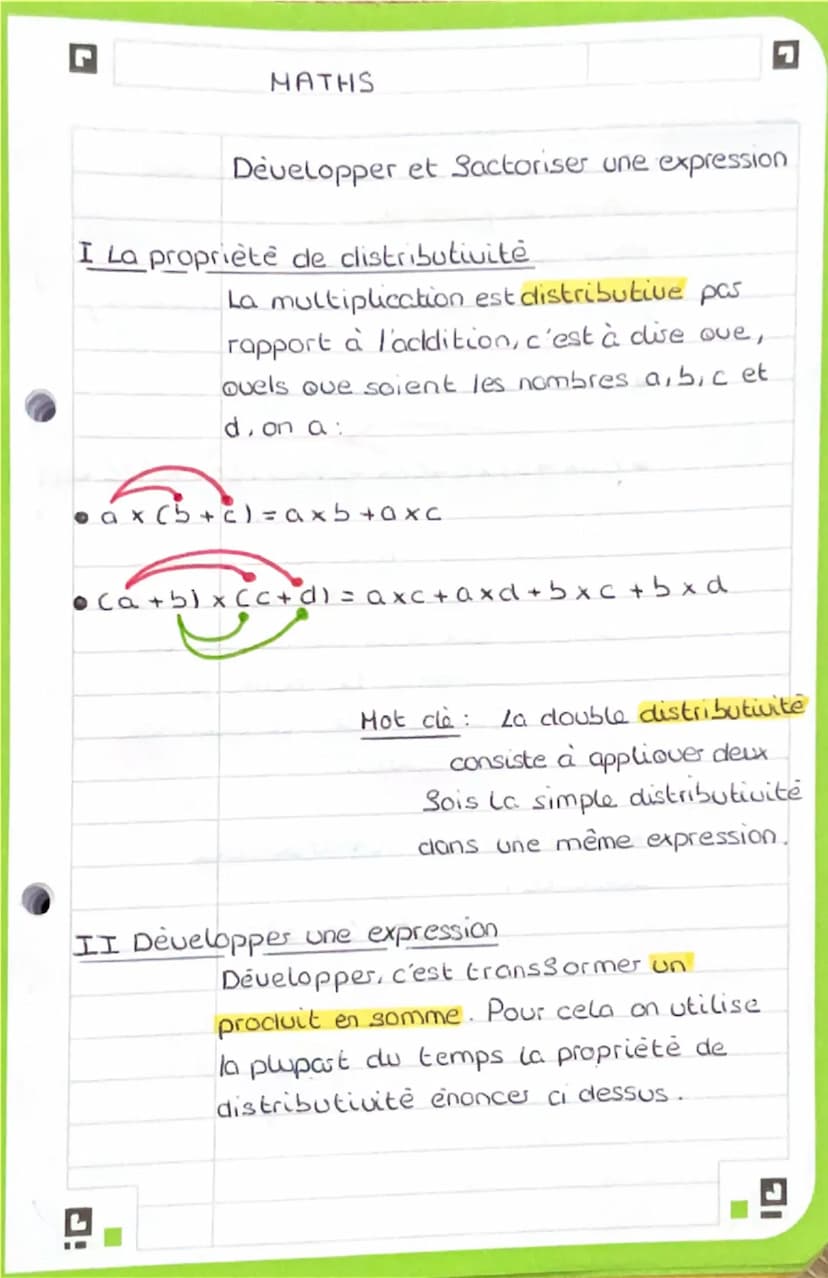 MATHS
Développer et factoriser une expression
I La propriété de distributivité
La multiplication est distributive par
rapport à l'addition, c'est à dire que,
quels que soient les nombres a, b, c et
d, on a :
• a × (b + c) = a × b + a × c
• (a + b) × (c + d) = a × c + a × d + b × c + b × d
Mot clé : La double distributivité
consiste à appliquer deux
fois la simple distributivité
dans une même expression.
II Développer une expression
Développer, c'est transformer un
produit en somme. Pour cela on utilise
la plupart du temps la propriété de
distributivité énoncer ci dessus.